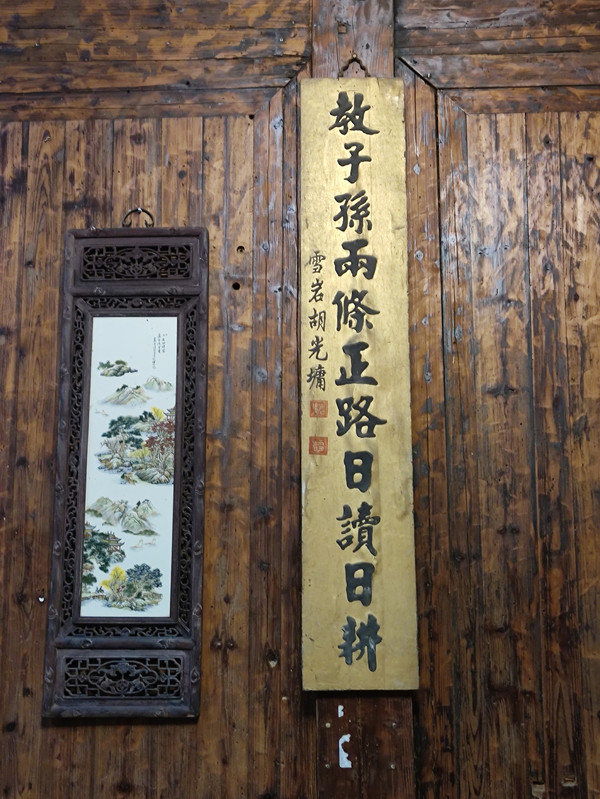 教子孫兩條正路日讀日耕
雪岩胡光墉